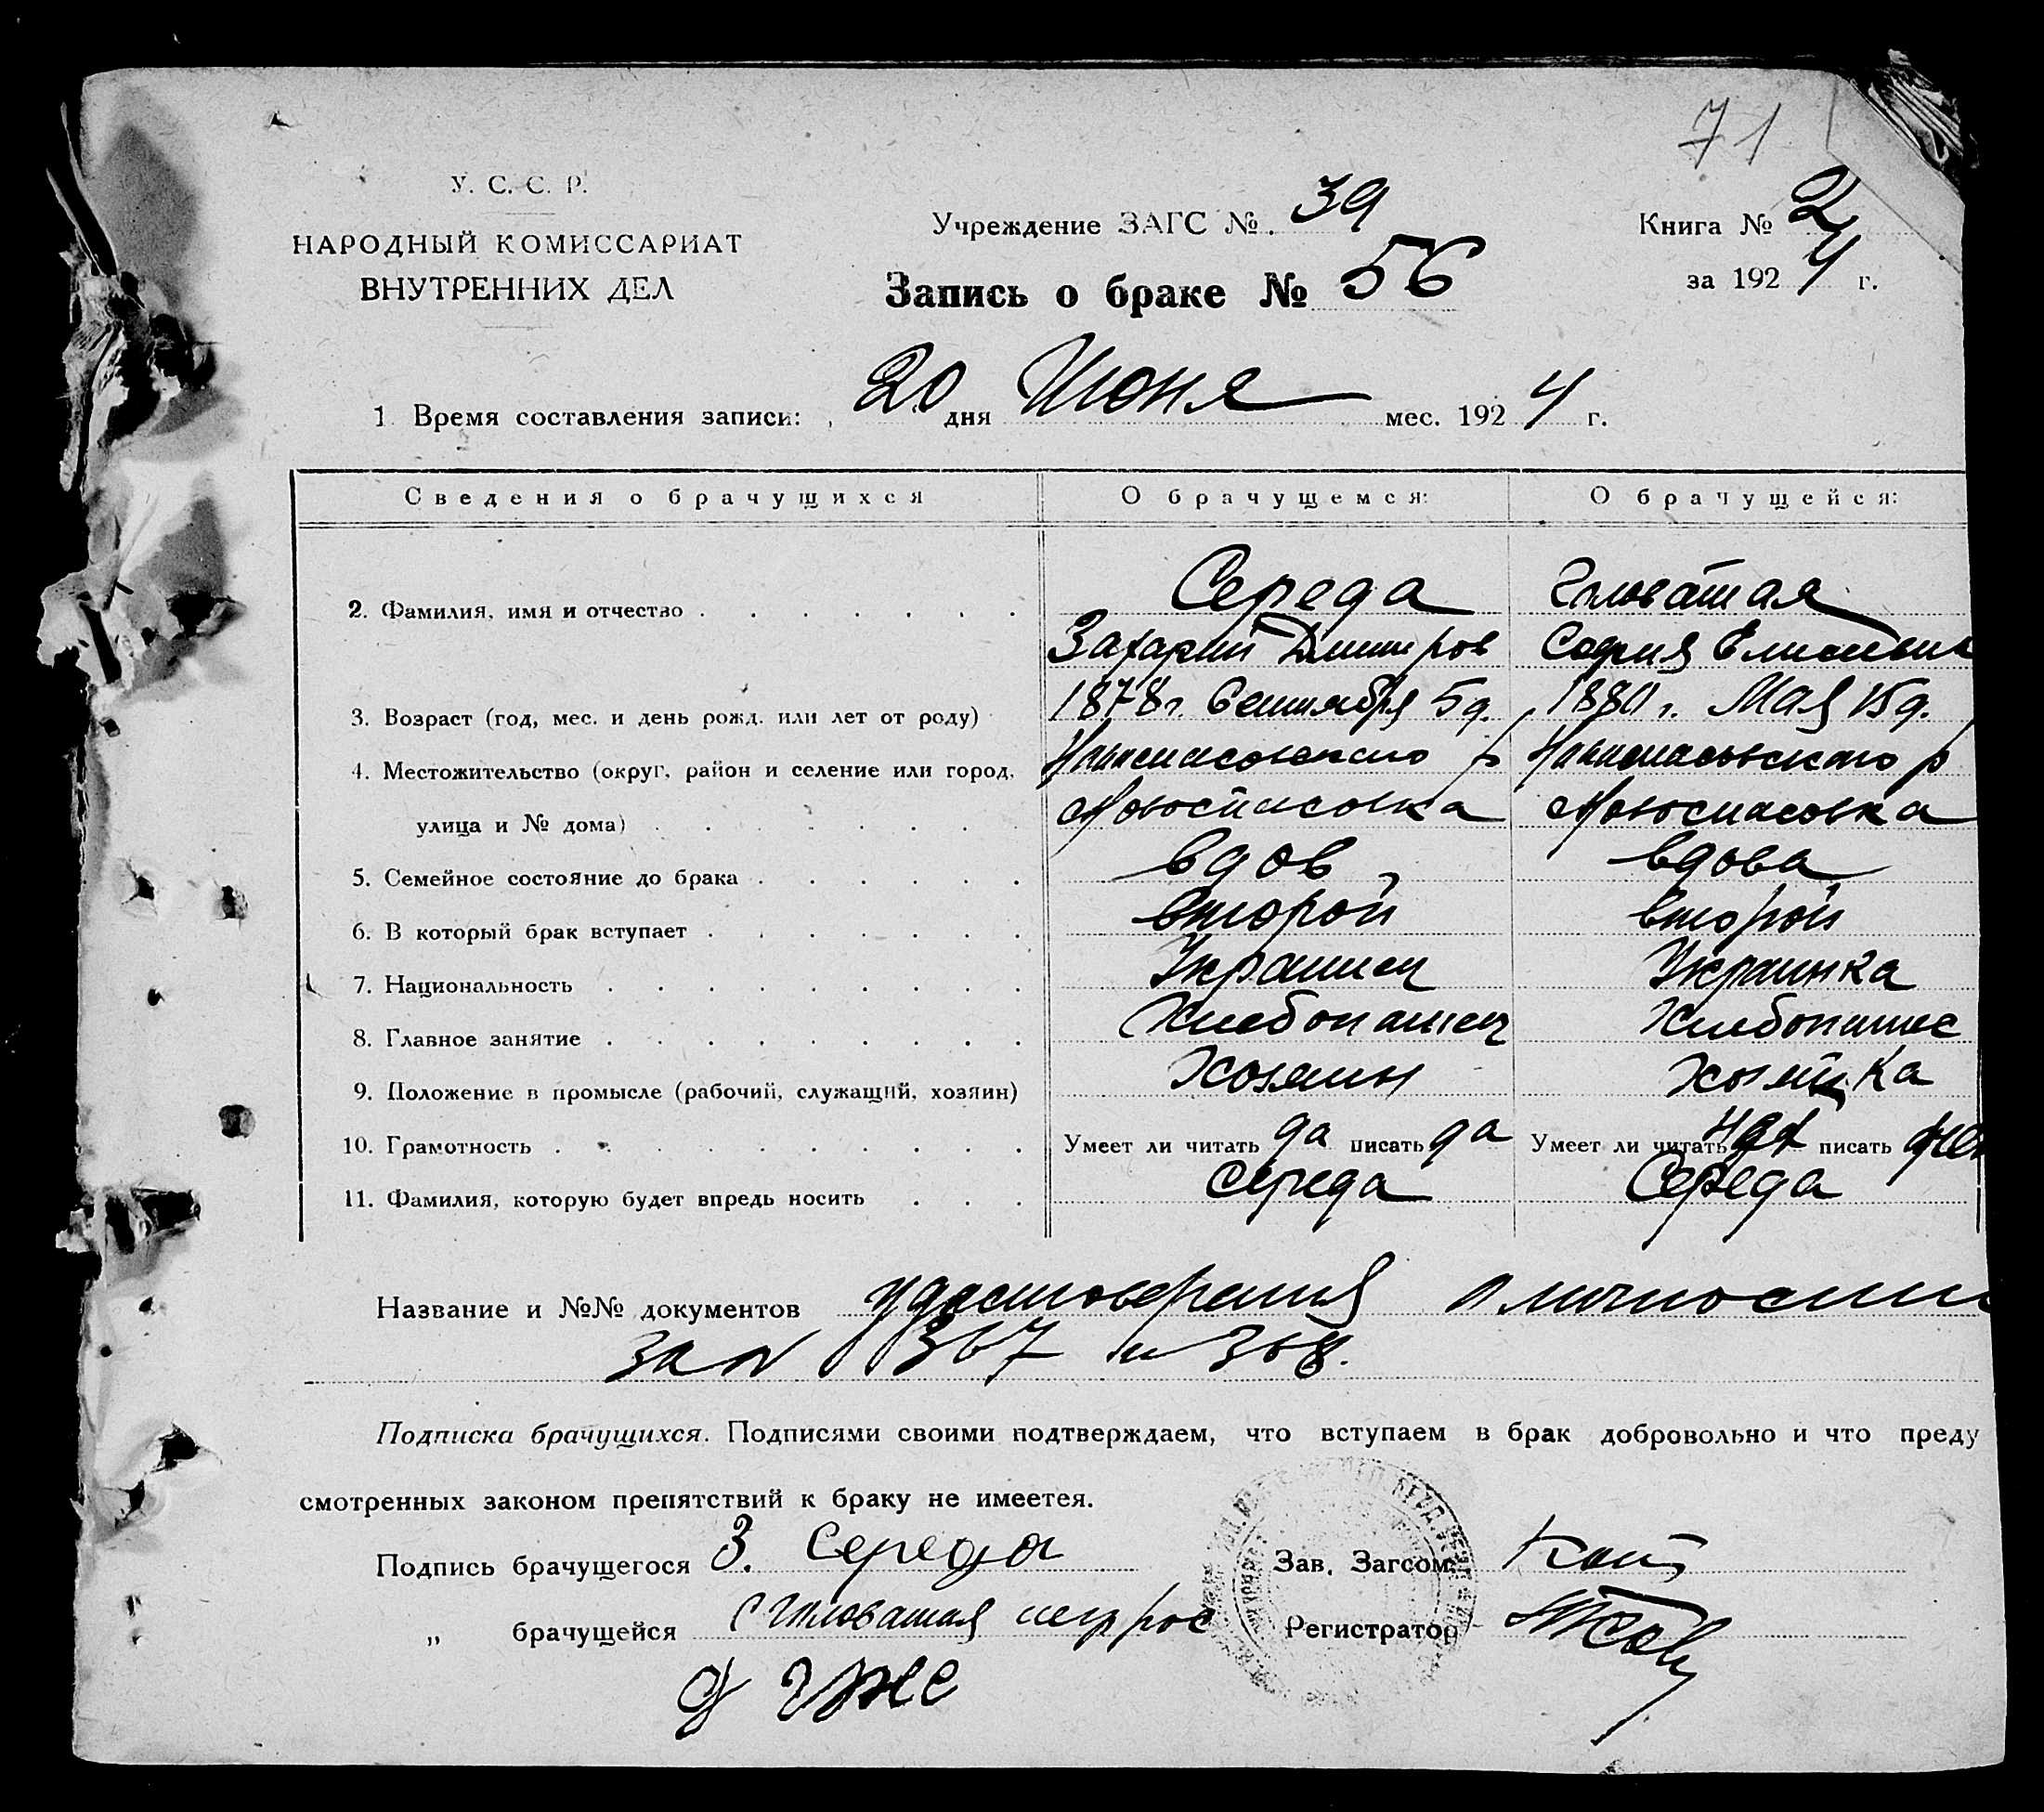 71
У. С. С. Р.
НАРОДНЫЙ КОМИССАРИАТ
ВНУТРЕННИХ ДЕЛ
Учреждение ЗАГС №. 39
Книга № 2
Запись о браке № 56
за 1924 г.
1 Время составления записи: 20 дня Июня мес. 1924 г.
Сведения о брачущихся О брачущемся: О брачущейся:
2. Фамилия, имя и отчество Середа Головатая
Захарий Димитров София
3. Возраст (год, мес. и день рожд. или лет от роду) 1878 г. Сентября 5 д. 1880 г. Мая 15 д.
4. Местожительство (округ, район и селение или город, р р
улица и № дома) Новоспасовка Новоспасовка
5. Семейное состояние до брака вдов вдова
6. В который брак вступает второй второй
7. Национальность Украинец Украинка
8. Главное занятие Хлебопашец Хлебопашес
9. Положение в промысле (рабочий, служащий, хозяин) Хозяин хозяйка
10. Грамотность Умеет ли читать да писать да Умеет ли читать нет писать нет
11. Фамилия, которую будет впредь носить Середа Середа
Название и №№ документов удостоверения о личности
за № 367 и 368.
Подписка брачущихся. Подписями своими подтверждаем, что вступаем в брак добровольно и что преду
смотренных законом препятствий к браку не имеетея.
Подпись брачущегося З. Середа Зав. Загсом:
„ брачущейся Головатая Регистратор